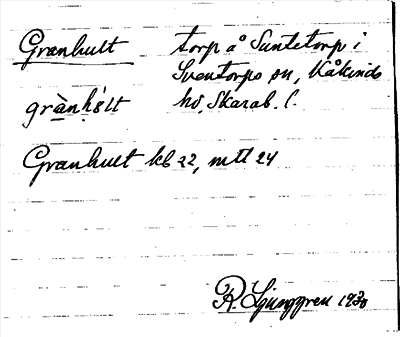 Granhult torp å Suntetorp i
Sventorps sn, Kåkinds
grànhʹolt hd, Skarab. l.
Granhult kb 22, mtl 24
R. Ljunggren 1930